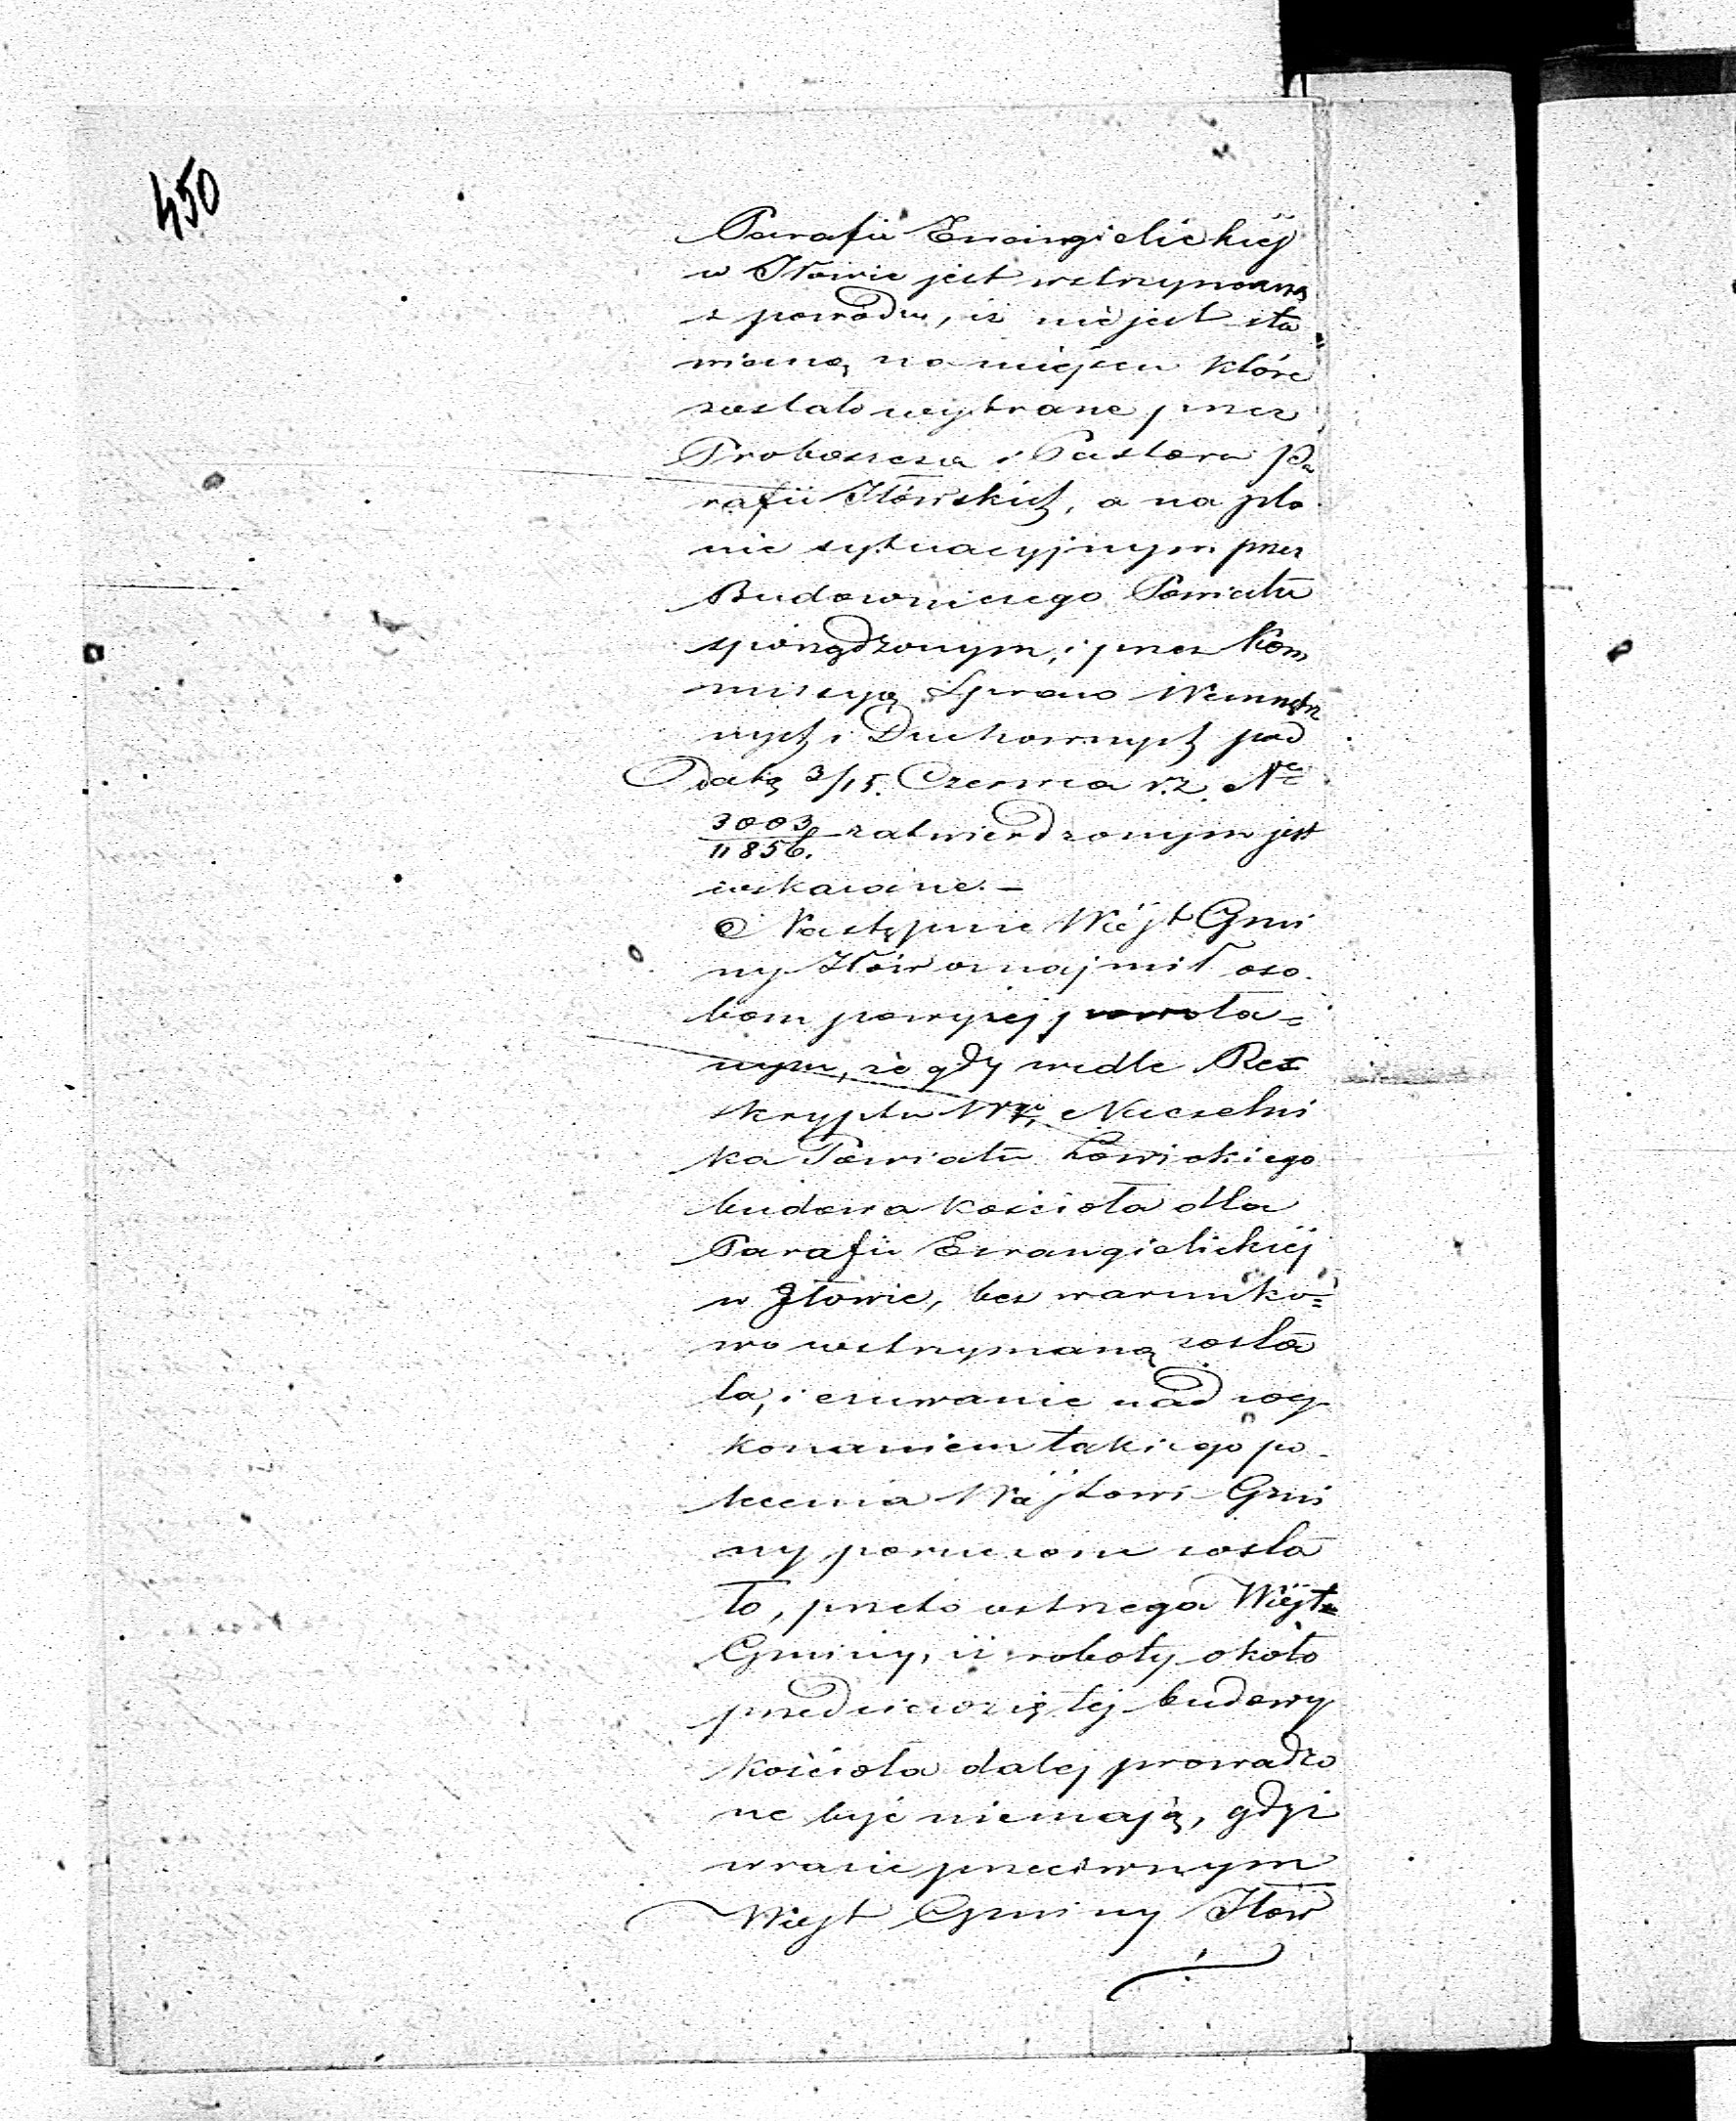 450
Parafii Ewangielickiéj
w Iłowie jest wstrzymaną
z powodu, iż nie jest sta
wianą na miejscu które
zostało wybrane przez
Proboszcza i Pastora Pa
rafii Iłówskich, a na pla
nie sytuacyjnym przez
Budowniczego Powiatu
sporządzonym, i przez Kom
missyą Spraw Wewnętrz
nych i Duchownych pod
datą 3/15. Czerwca r. z. No
3003/11856. zatwierdzonym jest
wskazane. —
Następnie Wójt Gmi
ny Iłów oznajmił oso
bom powyżej powoła=
nym, że gdy wedle Res
kryptu Naczelni
ka Powiatu Łowickiego
budowa kościoła dla
Parafii Ewangielickiéj
w Iłowie, bez warunko=
wo wstrzymaną zosta
ła, i czuwanie nad wy
konaniem takiego po
lecenia Wójtowi Gmi
ny poruczone zosta
ło, przeto ostrzega Wójt
Gminy, iż roboty około
przedsięwziętej budowy
kościoła dalej prowadzo
ne być niemają, gdyż
w razie przeciwnym
Wójt Gminy Iłów